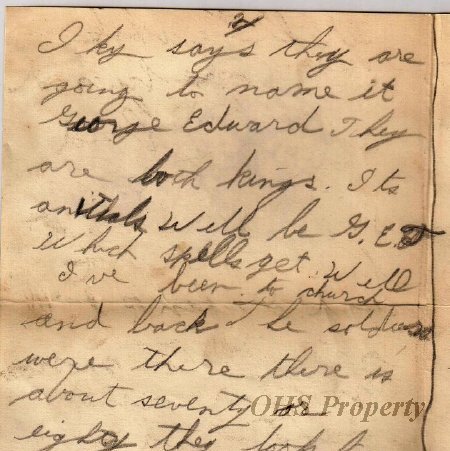 2
Iky says they are
going to name it
George Edward They
are both kings. Its
anitials will be G. E. T
Which spells get. Well
I've been to church
and back the soldiers
were there there is
about seventy or
eighty they look
OHS Property